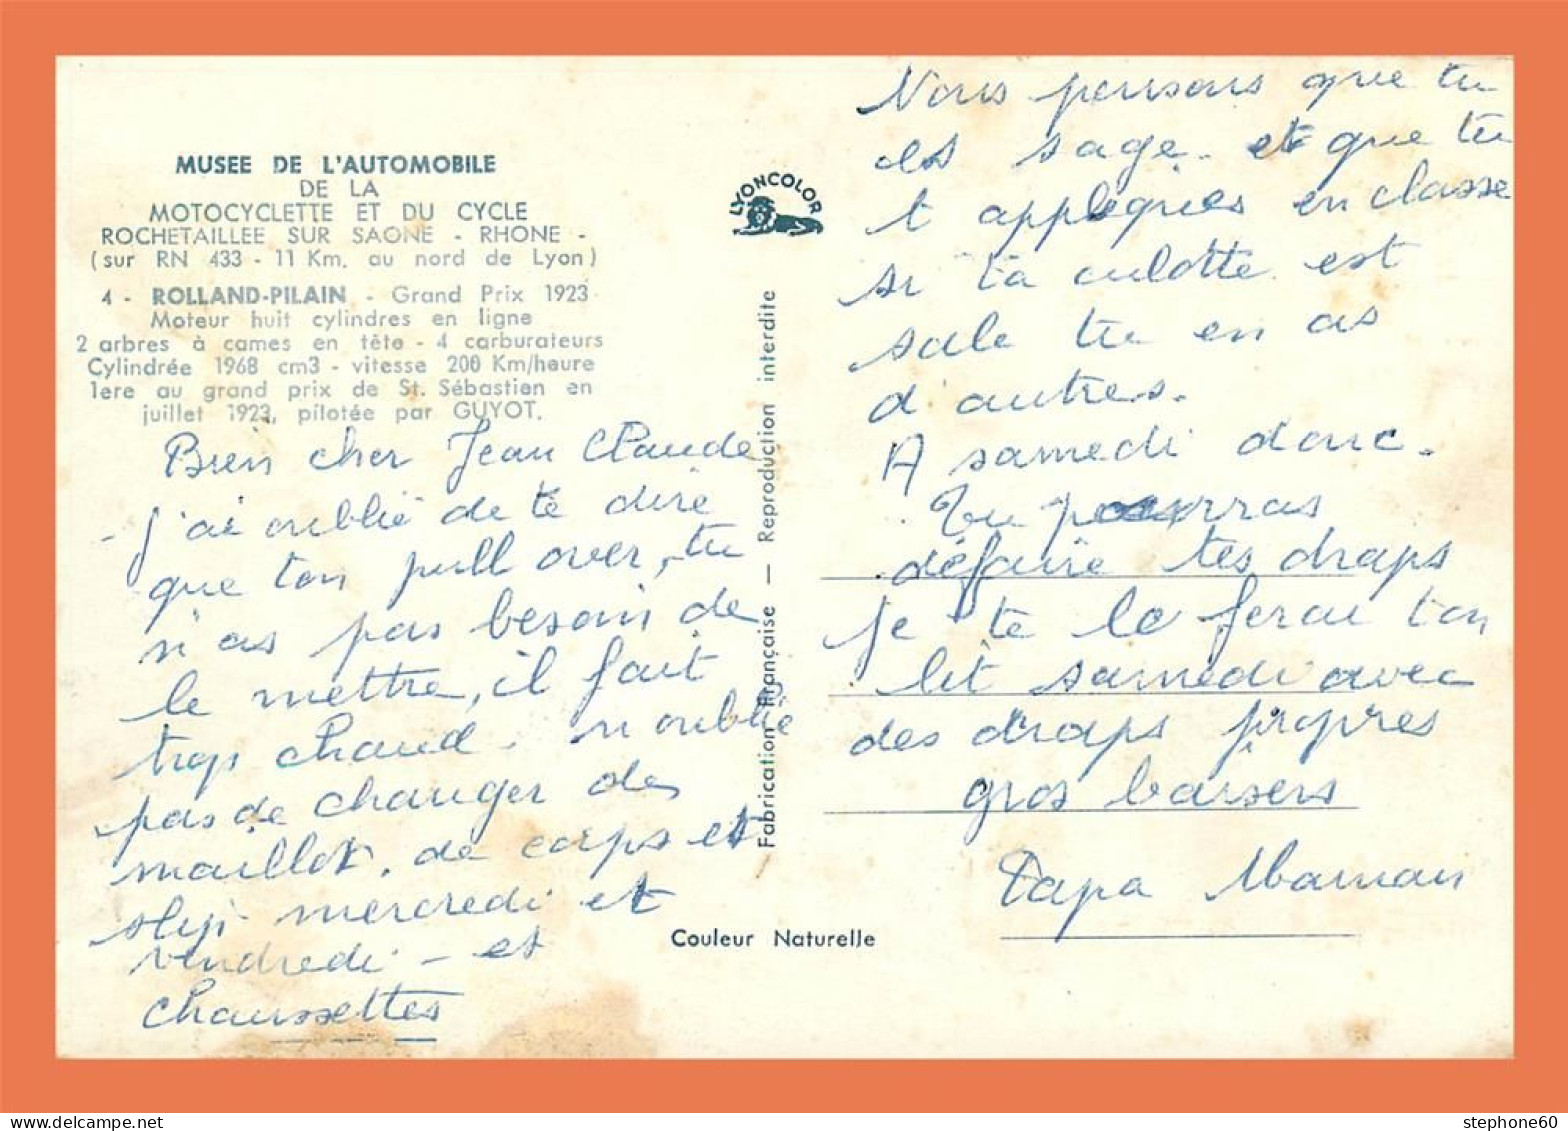 MUSEE DE L'AUTOMOBILE
DE LA
MOTOCYCLETTE ET DU CYCLE
ROCHETAILLEE SUR SAONE - RHONE -
(sur RN 433 - 11 Km. au nord de Lyon)
4 - ROLLAND-PILAIN - Grand Prix 1923
Moteur huit cylindres en ligne
2 arbres à cames en tête - 4 carburateurs
Cylindrée 1968 cm3 - vitesse 200 Km/heure
1ere au grand prix de St. Sébastien en
juillet 1923, pilotée par GUYOT.
Bien cher Jean Claude
j'ai oublié de te dire
que ton pull over, tu
n'as pas besoin de
le mettre, il fait
trop chaud. n oublie
pas de changer de
maillot. de corps et
slip mercredi et
vendredi - et
chaussettes
LYONCOLOR
Fabrication Française — Reproduction interdite
Couleur Naturelle
Nous pensons que tu
es sage. et que tu
t appliques en classe
si ta culotte est
sale tu en as
d autres.
A samedi donc.
Tu pourras
défaire tes draps
je te le ferai ton
lit samedi avec
des draps propres
gros baisers
Papa Maman
stephone60